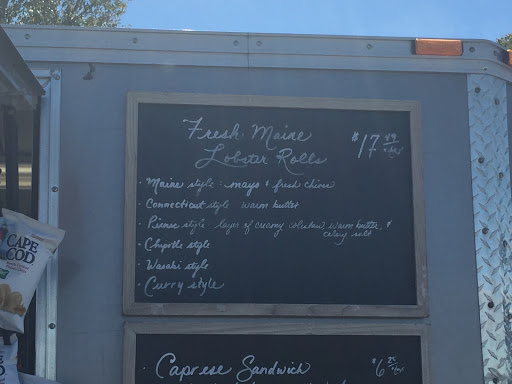 Fresh Maine
Lobster Rolls
$17.49 + tax
• Maine style: mayo & fresh chives
• Connecticut style warm butter
• Picnic style layer of creamy coleslaw, warm butter &
celery salt
• Chipotle style
• Wasabi style
• Curry style
CAPE
COD
Caprese Sandwich